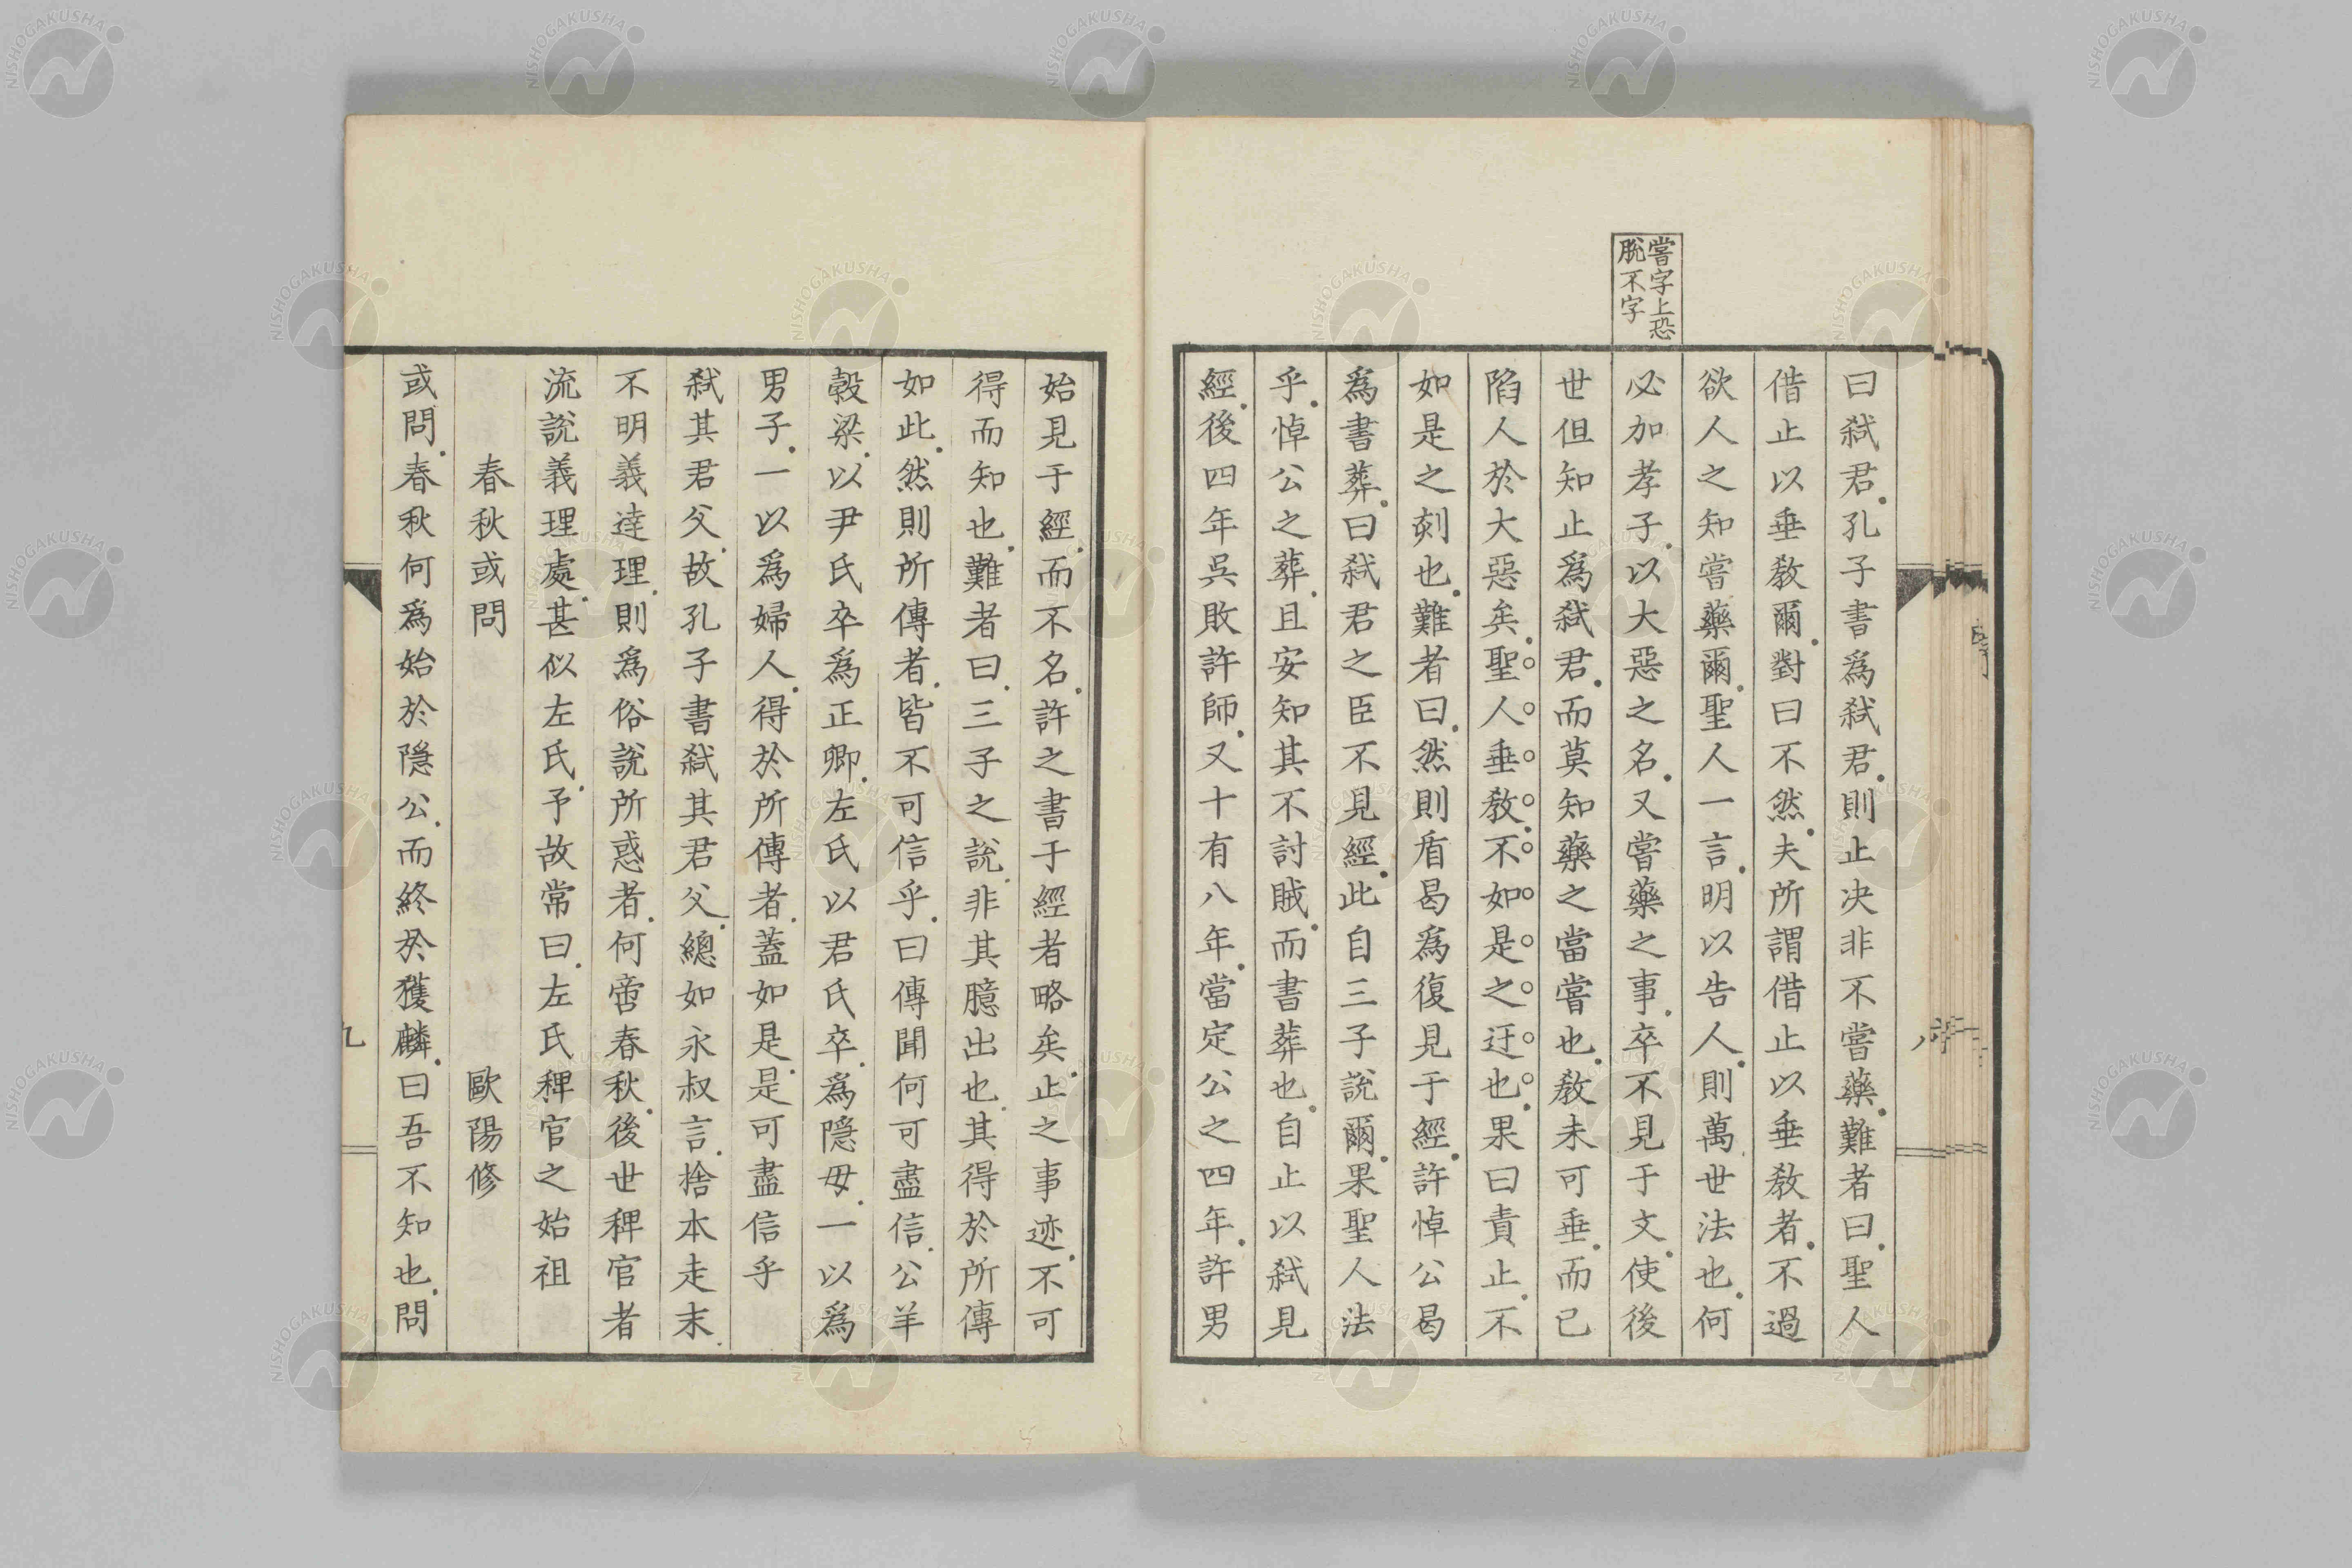 嘗字上恐
脫不字
曰弑君孔子書爲弑君則止决非不嘗藥難者曰聖人
借止以垂敎爾對曰不然夫所謂借止以垂敎者不過
欲人之知嘗藥爾聖人一言明以告人則萬世法也何
必加孝子以大惡之名又嘗藥之事卒不見于文使後
世但知止爲弑君而莫知藥之當嘗也敎未可垂而已
陷人於大惡矣聖人垂敎不如是之迂也果曰責止不
如是之刻也難者曰然則盾曷爲復見于經許悼公曷
爲書葬曰弑君之臣不見經此自三子說爾果聖人法
乎悼公之葬且安知其不討賊而書葬也自止以弑見
經後四年吳敗許師又十有八年當定公之四年許男
始見于經而不名許之書于經者略矣止之事迹不可
得而知也難者曰三子之說非其臆出也其得於所傳
如此然則所傳者皆不可信乎曰傳聞何可盡信公羊
穀梁以尹氏卒爲正卿左氏以君氏卒爲隱母一以爲
男子一以爲婦人得於所傳者蓋如是是可盡信乎
弑其君父故孔子書弑其君父總如永叔言捨本走末
不明義達理則爲俗說所惑者何啻春秋後世稗官者
流說義理處甚似左氏予故常曰左氏稗官之始祖
春秋或問 歐陽修
或問春秋何爲始於隱公而終於獲麟曰吾不知也問
九